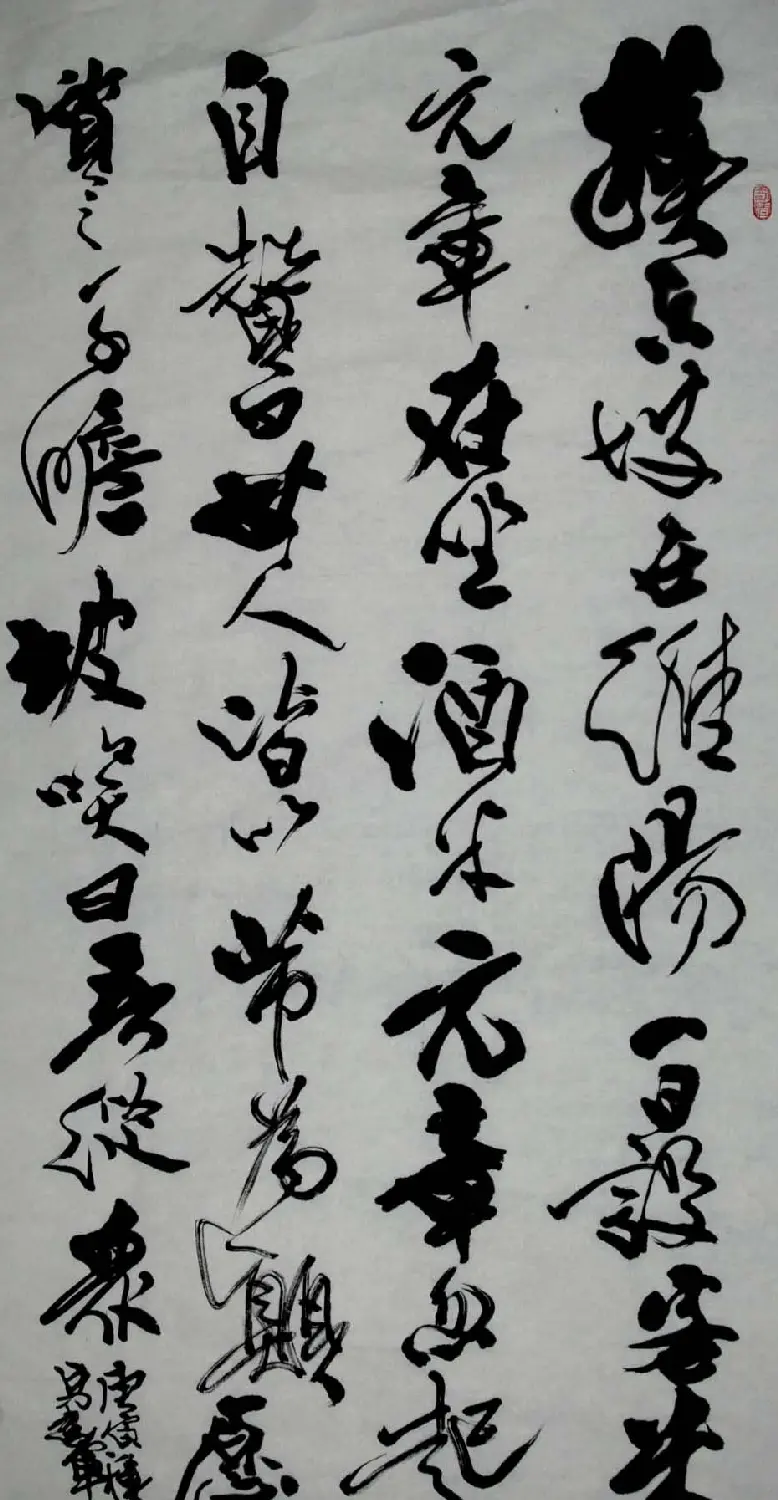 蘇東坡在維揚一日設客米
元章在坐酒半元章忽起
自贊曰世人皆以芾為顛愿
質之子瞻坡笑曰吾從衆